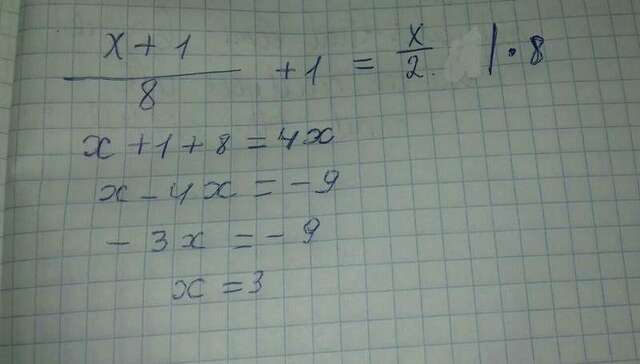 (x + 1)/8 + 1 = x/2 | · 8
x + 1 + 8 = 4x
x - 4x = -9
- 3x = - 9
x = 3